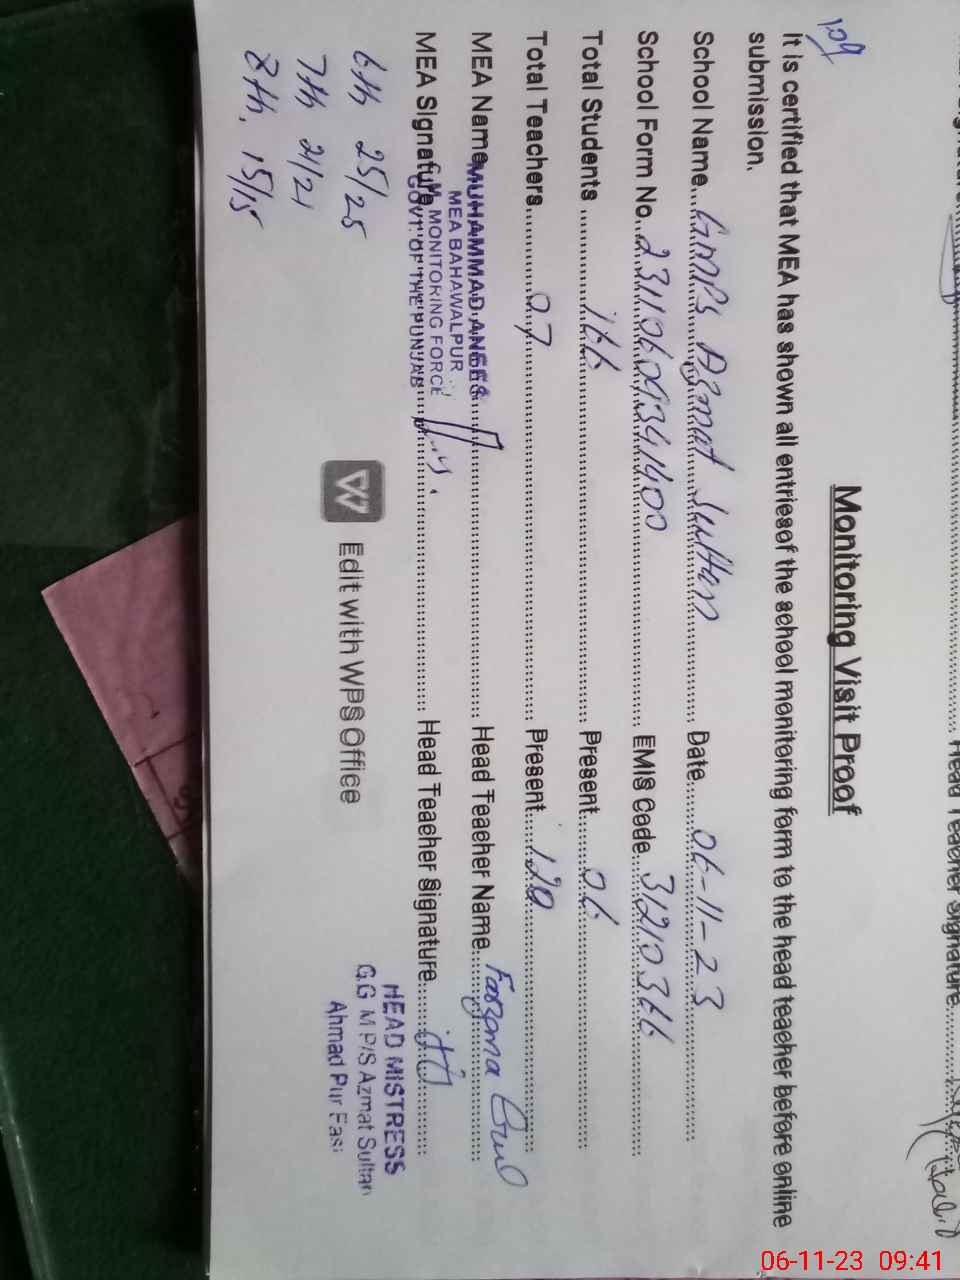 Head Teacher Signature
Monitoring Visit Proof
109
It is certified that MEA has shown all entriesof the school monitoring form to the head teacher before online
submission.
School Name....GMPS Azmat Sultan........ Date........06-11-23........
School Form No..23110609341400........ EMIS Code...31210366........
Total Students ........166........ Present......06........
Total Teachers........07........ Present......120........
MEA Name MUHAMMAD ANEES........ Head Teacher Name......
MEA BAHAWALPUR
C.M. MONITORING FORCE
GOVT: OF THE PUNJAB
MEA Signature........ Head Teacher Signature........
HEAD MISTRESS
G.G M P/S Azmat Sultan
Ahmad Pur East
6th 25/25
7th 21/21
8th. 15/15
Edit with WPS Office
06-11-23 09:41